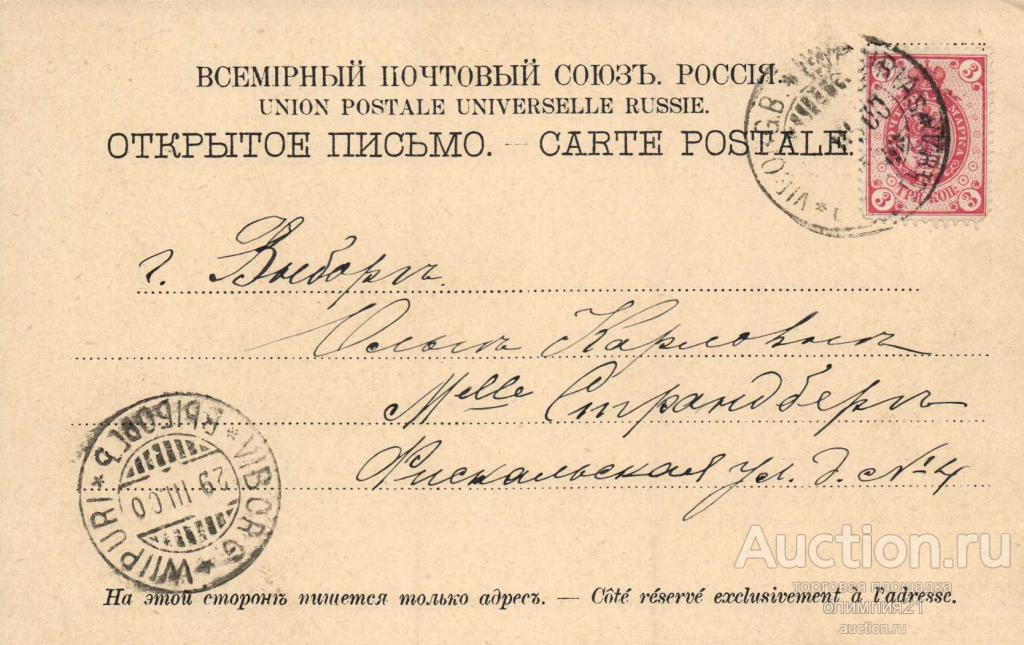 ВСЕМІРНЫЙ ПОЧТОВЫЙ СОЮЗЪ. РОССІЯ.
UNION POSTALE UNIVERSELLE RUSSIE.
ОТКРЫТОЕ ПИСЬМО. — CARTE POSTALE.
3 3
МАРКА
3 ТРИ КОП. 3
г. Выборгъ
Карловнѣ
Melle Страндбергъ
Фискальская ул. д. №4
WIIPURI * ВЫБОРГЪ * VIBORG *
29 III.00
На этой сторонѣ пишется только адресъ. — Côté réservé exclusivement à l'adresse.
Auction.ru
торговая площадка
олимпия21
auction.ru